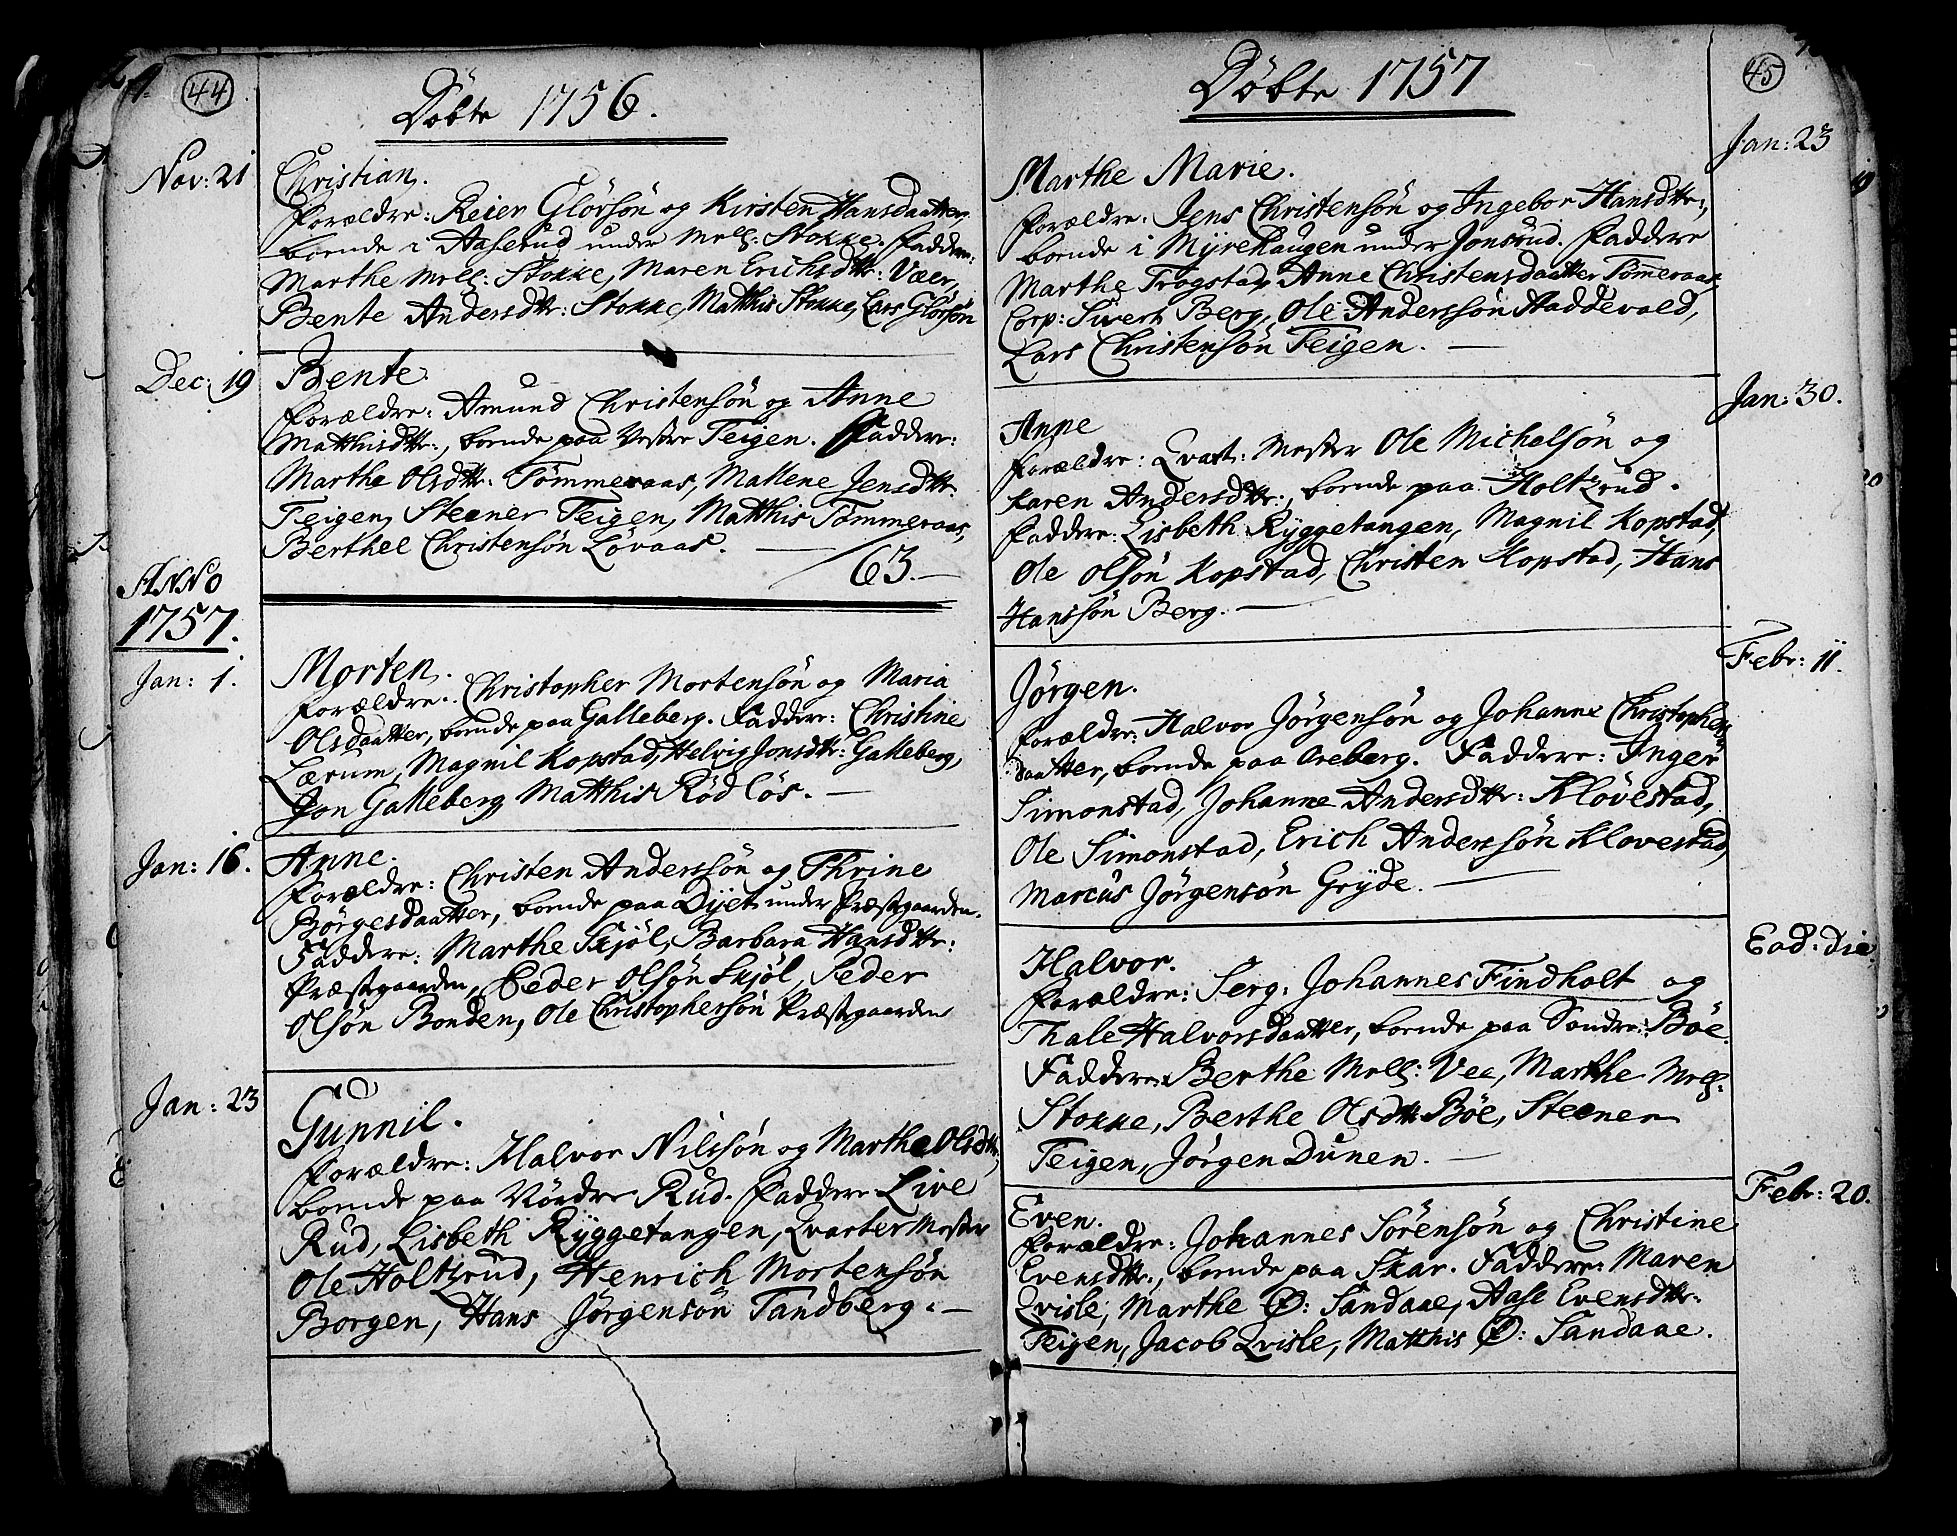 44
Döbte 1756.
Nov: 21
Christian.
Forældre: Reier Glörsön og Kirsten Hansdaatter,
boende i Aaserud under Mell: Stokke. Faddere:
Marthe Mell: Stokke, Maren Erichsdttr: Væer,
Bente Andersdttr: Stokke, Matthis Stokke, Lars Glörsön
Dec: 19
Bente.
Forældre: Amund Christensön og Anne
Matthisdttr:, boende paa Vestre Teigen. Faddere:
Marthe Olsdttr: Tömmeraas, Mallene Jensdttr:
Teigen, Steener Teigen, Matthis Tömmeraas,
Berthel Christensön Lövaas. —
63. —
ANNO
1757.
Jan: 1.
Morten.
Forældre: Christopher Mortensön og Maria
Olsdaatter, boende paa Galleberg. Faddere: Christine
Lærum, Magnil Kopstad, Helvig Jonsdttr: Galleberg,
Jon Galleberg Matthis Rödlös. —
Jan: 16.
Anne.
Forældre: Christen Anderssön og Thrine
Börgesdaatter, boende paa Dyet under Præstgaarden.
Faddere: Marthe Skjöl, Barbara Hansdttr:
Præstgaarden, Peder Olsön Skjöl, Peder
Olsön Bonden, Ole Christophersön Præstgaarden
Jan: 23
Gunnil.
Forældre: Halvor Nilssön og Marthe Olsdttr,
boende paa Nördre Rud. Faddere: Live
Rud, Lisbeth Ryggetangen, Qvarter Mester
Ole Holtzrud, Henrich Mortensön
Borgen, Hans Jörgensön Tandberg. —
45
Döbte 1757
Jan: 23
Marthe Marie.
Forældre: Jens Christensön og Ingebor Hansdttr:,
boende i Myrehaugen under Jonsrud. Faddere
Marthe Trogstad, Anne Christensdaatter Tömmeraas
Corp: Sivert Berg, Ole Anderssön Haddevald,
Lars Christensön Teigen. —
Jan: 30.
Anne
Forældre: Qvart: Mester Ole Michelsön og
Karen Andersdttr:, boende paa Holtzrud.
Faddere: Lisbeth Ryggetangen, Magnil Kopstad,
Ole Olsön Kopstad, Christen Kopstad, Hans
Hanssön Berg. —
Febr: 11.
Jörgen.
Forældre: Halvor Jörgensön og Johanne Christophers
daatter, boende paa Oreberg. Faddere: Inger
Simonstad, Johanne Andersdttr: Klövestad,
Ole Simonstad, Erich Anderssön Klovestad,
Marcus Jörgensön Gryde. —
Eod: die
Halvor.
Forældre: Serg: Johannes Findholt og
Thale Halvorsdaatter, boende paa Söndre: Böe.
Faddere: Berthe Mell: Vea, Marthe Mell:
Stokke, Berthe Olsdttr Böe, Steener
Teigen, Jörgen Dunen. —
Febr: 20.
Even.
Forældre: Johannes Sörensön og Christine
Evensdttr:, boende paa Skar. Faddere: Maren
Qvisle, Marthe Ø: Sandaae, Aase Evensdttr:
Teigen, Jacob Qvisle, Matthis Ø: Sandaae.